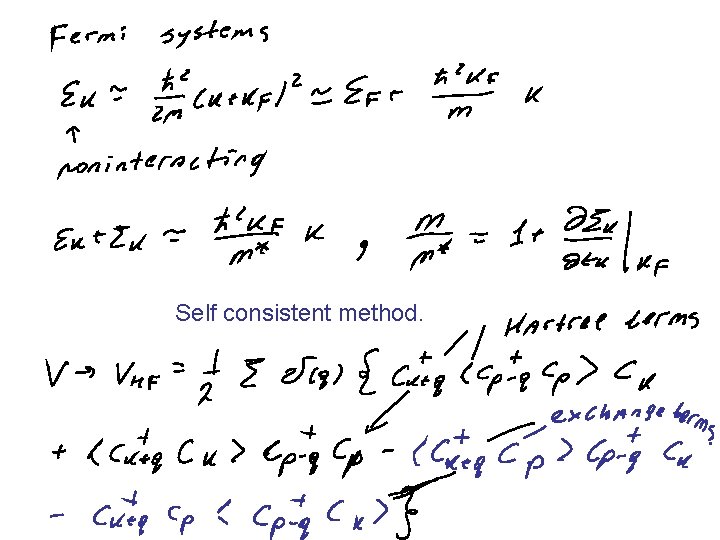 Fermi systems
Σk ≃ ħ²/2m (k+kF)² ≃ ΣF + ħ²kF/m k
↑
noninteracting
Σk + Σk ≃ ħ²kF/m* k , m/m* = 1 + ∂Σk/∂εk |kF
Self consistent method.
Hartree terms
V → VHF = 1/2 Σ v(q) { C⁺k+q <C⁺p-q Cp> Ck
exchange terms
+ <C⁺k+q Ck> C⁺p-q Cp - <C⁺k+q Cp> C⁺p-q Ck
- C⁺k+q Cp <C⁺p-q Ck> }